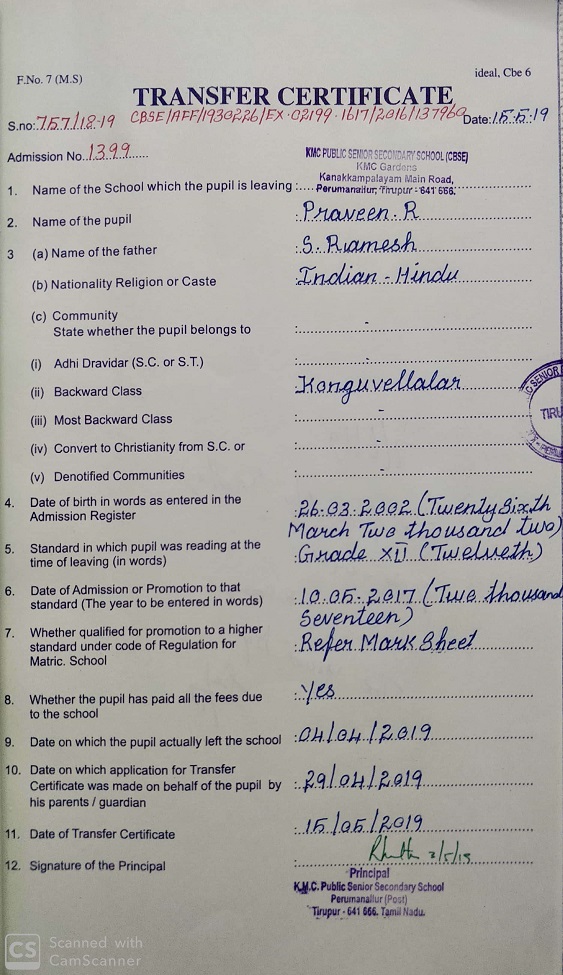 F.No. 7 (M.S)
ideal, Cbe 6
TRANSFER CERTIFICATE
S.no: 757/18-19 CBSE/AFF/1930226/EX-02199-1617/2016/137960 Date: 15.5.19
Admission No. 1399
KMC PUBLIC SENIOR SECONDARY SCHOOL (CBSE)
KMC Gardens
Kanakkampalayam Main Road,
1. Name of the School which the pupil is leaving : Perumanallur, Tirupur - 641 666.
2. Name of the pupil : Praveen. R
3 (a) Name of the father : S. Ramesh
(b) Nationality Religion or Caste : Indian - Hindu
(c) Community
State whether the pupil belongs to : -
(i) Adhi Dravidar (S.C. or S.T.) : -
(ii) Backward Class : Konguvellalar
(iii) Most Backward Class : -
(iv) Convert to Christianity from S.C. or : -
(v) Denotified Communities : -
4. Date of birth in words as entered in the Admission Register : 26-03-2002 (Twenty Sixth
March Two thousand two)
5. Standard in which pupil was reading at the time of leaving (in words) : Grade XII (Twelveth)
6. Date of Admission or Promotion to that standard (The year to be entered in words) : 10.05-2017 (Two thousand
Seventeen)
7. Whether qualified for promotion to a higher standard under code of Regulation for Matric. School : Refer Mark Sheet
8. Whether the pupil has paid all the fees due to the school : Yes
9. Date on which the pupil actually left the school : 04/04/2019
10. Date on which application for Transfer Certificate was made on behalf of the pupil by his parents / guardian : 29/04/2019
11. Date of Transfer Certificate : 15/05/2019
12. Signature of the Principal :
Principal
K.M.C. Public Senior Secondary School
Perumanallur (Post)
Tirupur - 641 666. Tamil Nadu.
C SENIOR
TIRU
CS Scanned with
CamScanner